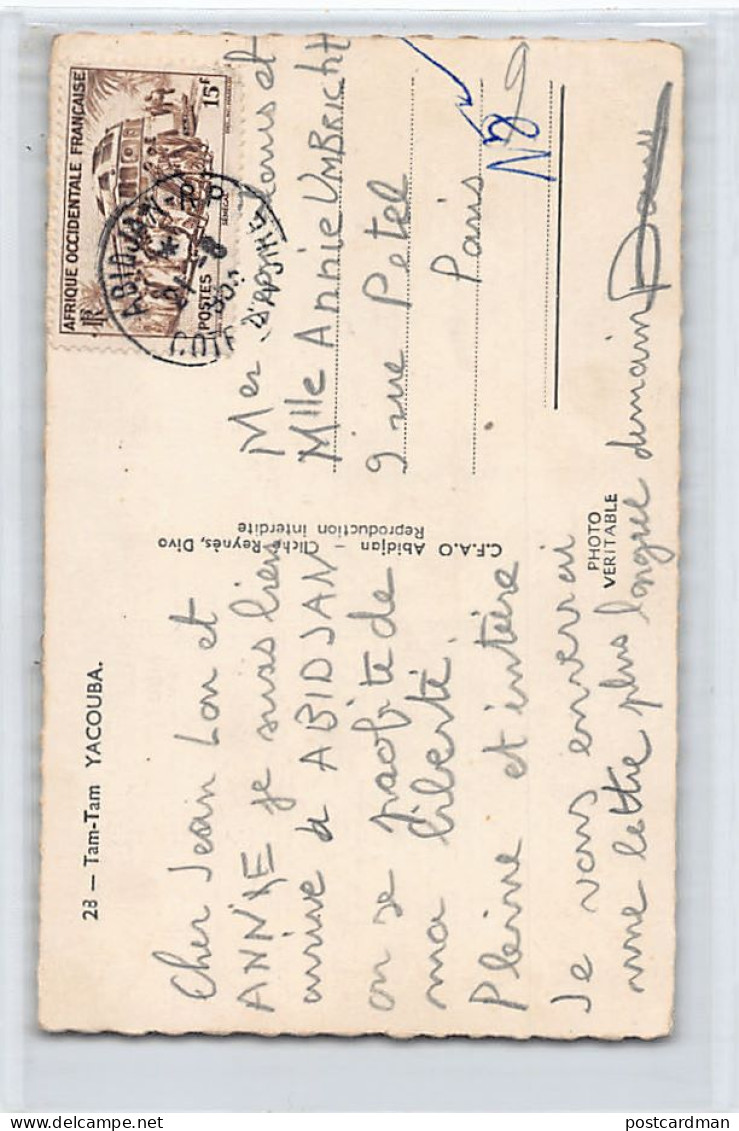 28 — Tam-Tam YACOUBA.
Cher Jean Lou et
ANNIE je suis bien
arrivé à ABIDJAN
où je profite de
ma liberté.
Pleine et entière
Je vous enverrai
une lettre plus longue demain
C.F.A.O Abidjan — Cliché Reynès, Divo
Reproduction interdite
PHOTO
VERITABLE
AFRIQUE OCCIDENTALE FRANÇAISE
15F
POSTES
SENEGAL
RF
ABIDJAN R.P
21 -8
COTE D'IVOIRE
et
Mlle ANNIE UMBRICHT
9 rue Petel
Paris